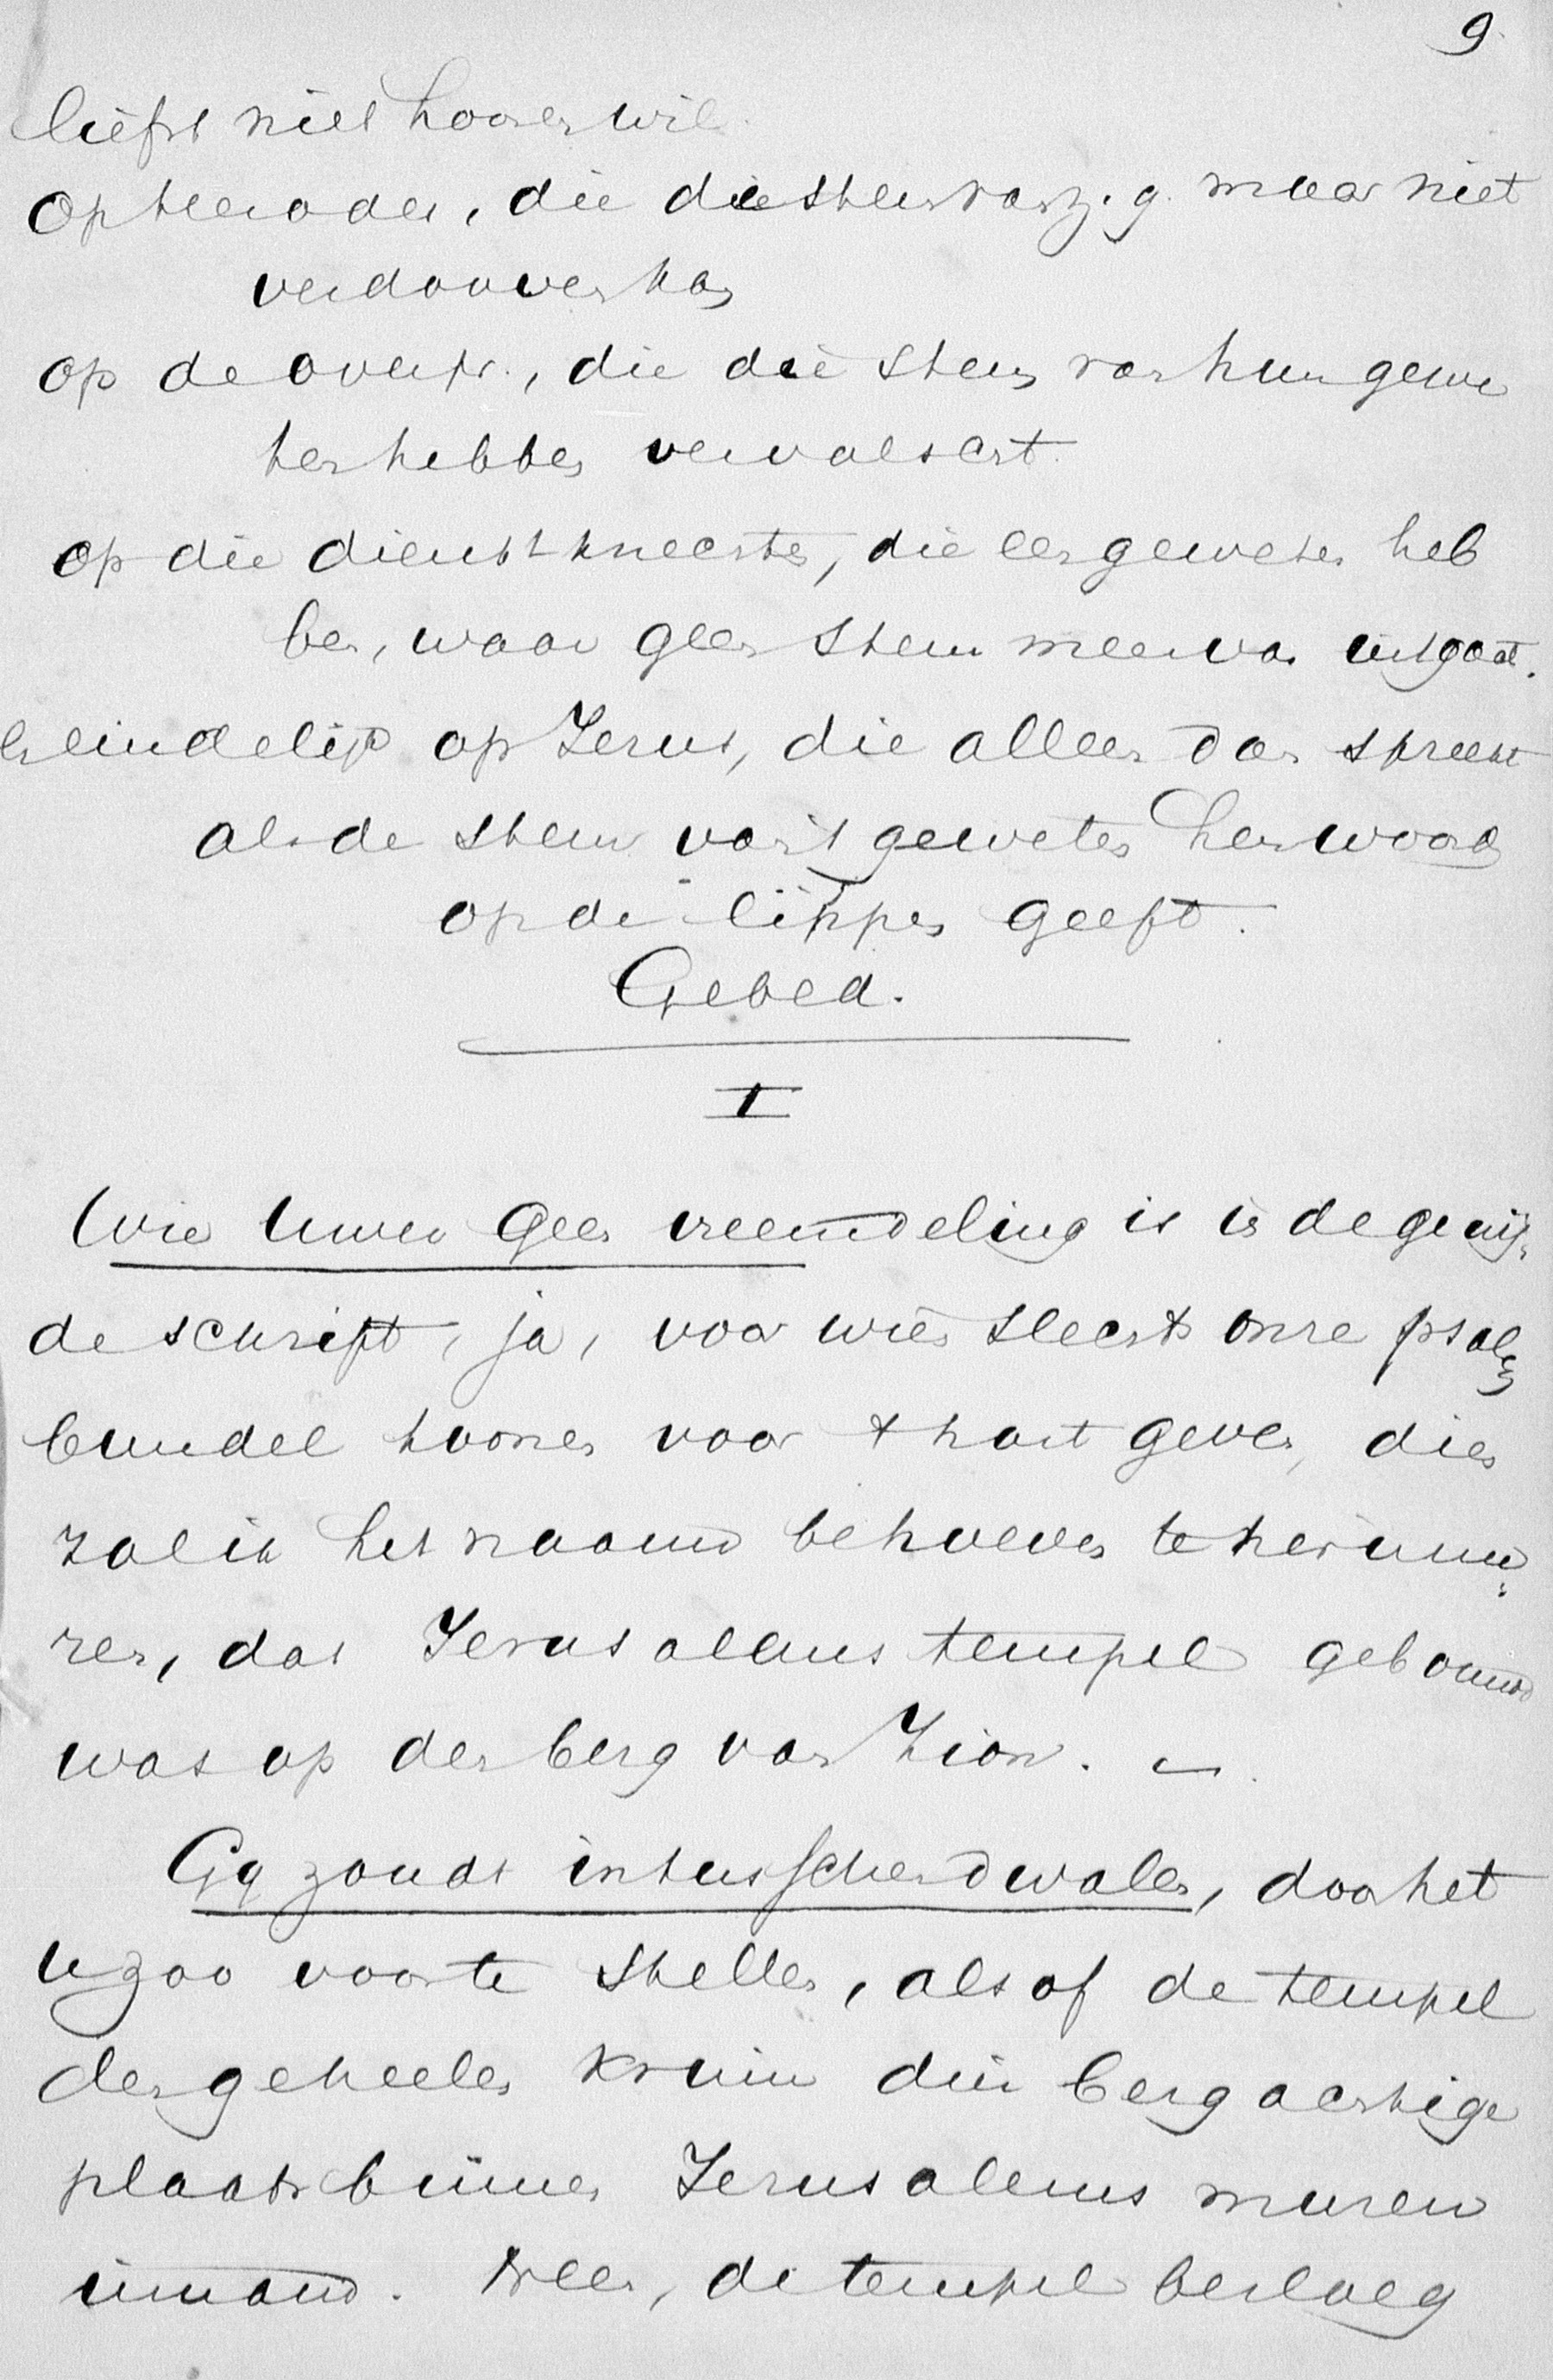 9.
liefst niet hooren wil.
Op Herodes, die die stem van z. g. maar niet
verdooven kan
op de overpr., die die stem van hun gewe
ten hebben vervalscht.
op die dienstknechten, die een geweten heb
ben, waar geen stem meer van uitgaat.
eindelijk op Jezus, die alleen dan spreekt
als de stem van 't geweten hem woord
op de lippen geeft.
Gebed.
I
Wie Uwer geen vreemdeling is in de gewij-
de schrift, ja, voor wien slechts onze psalm
bundel toonen voor 't hart geven, dien
zal ik het naauw behoeven te herinne-
ren, dat Jerusalems tempel gebouwd
was op den berg van Zion. –
Gij zoudt intusschen dwalen, door het
u zoo voor te stellen, alsof de tempel
den geheelen kruin dier bergachtige
plaats binnen Jerusalems muren
innam. Neen, de tempel besloeg